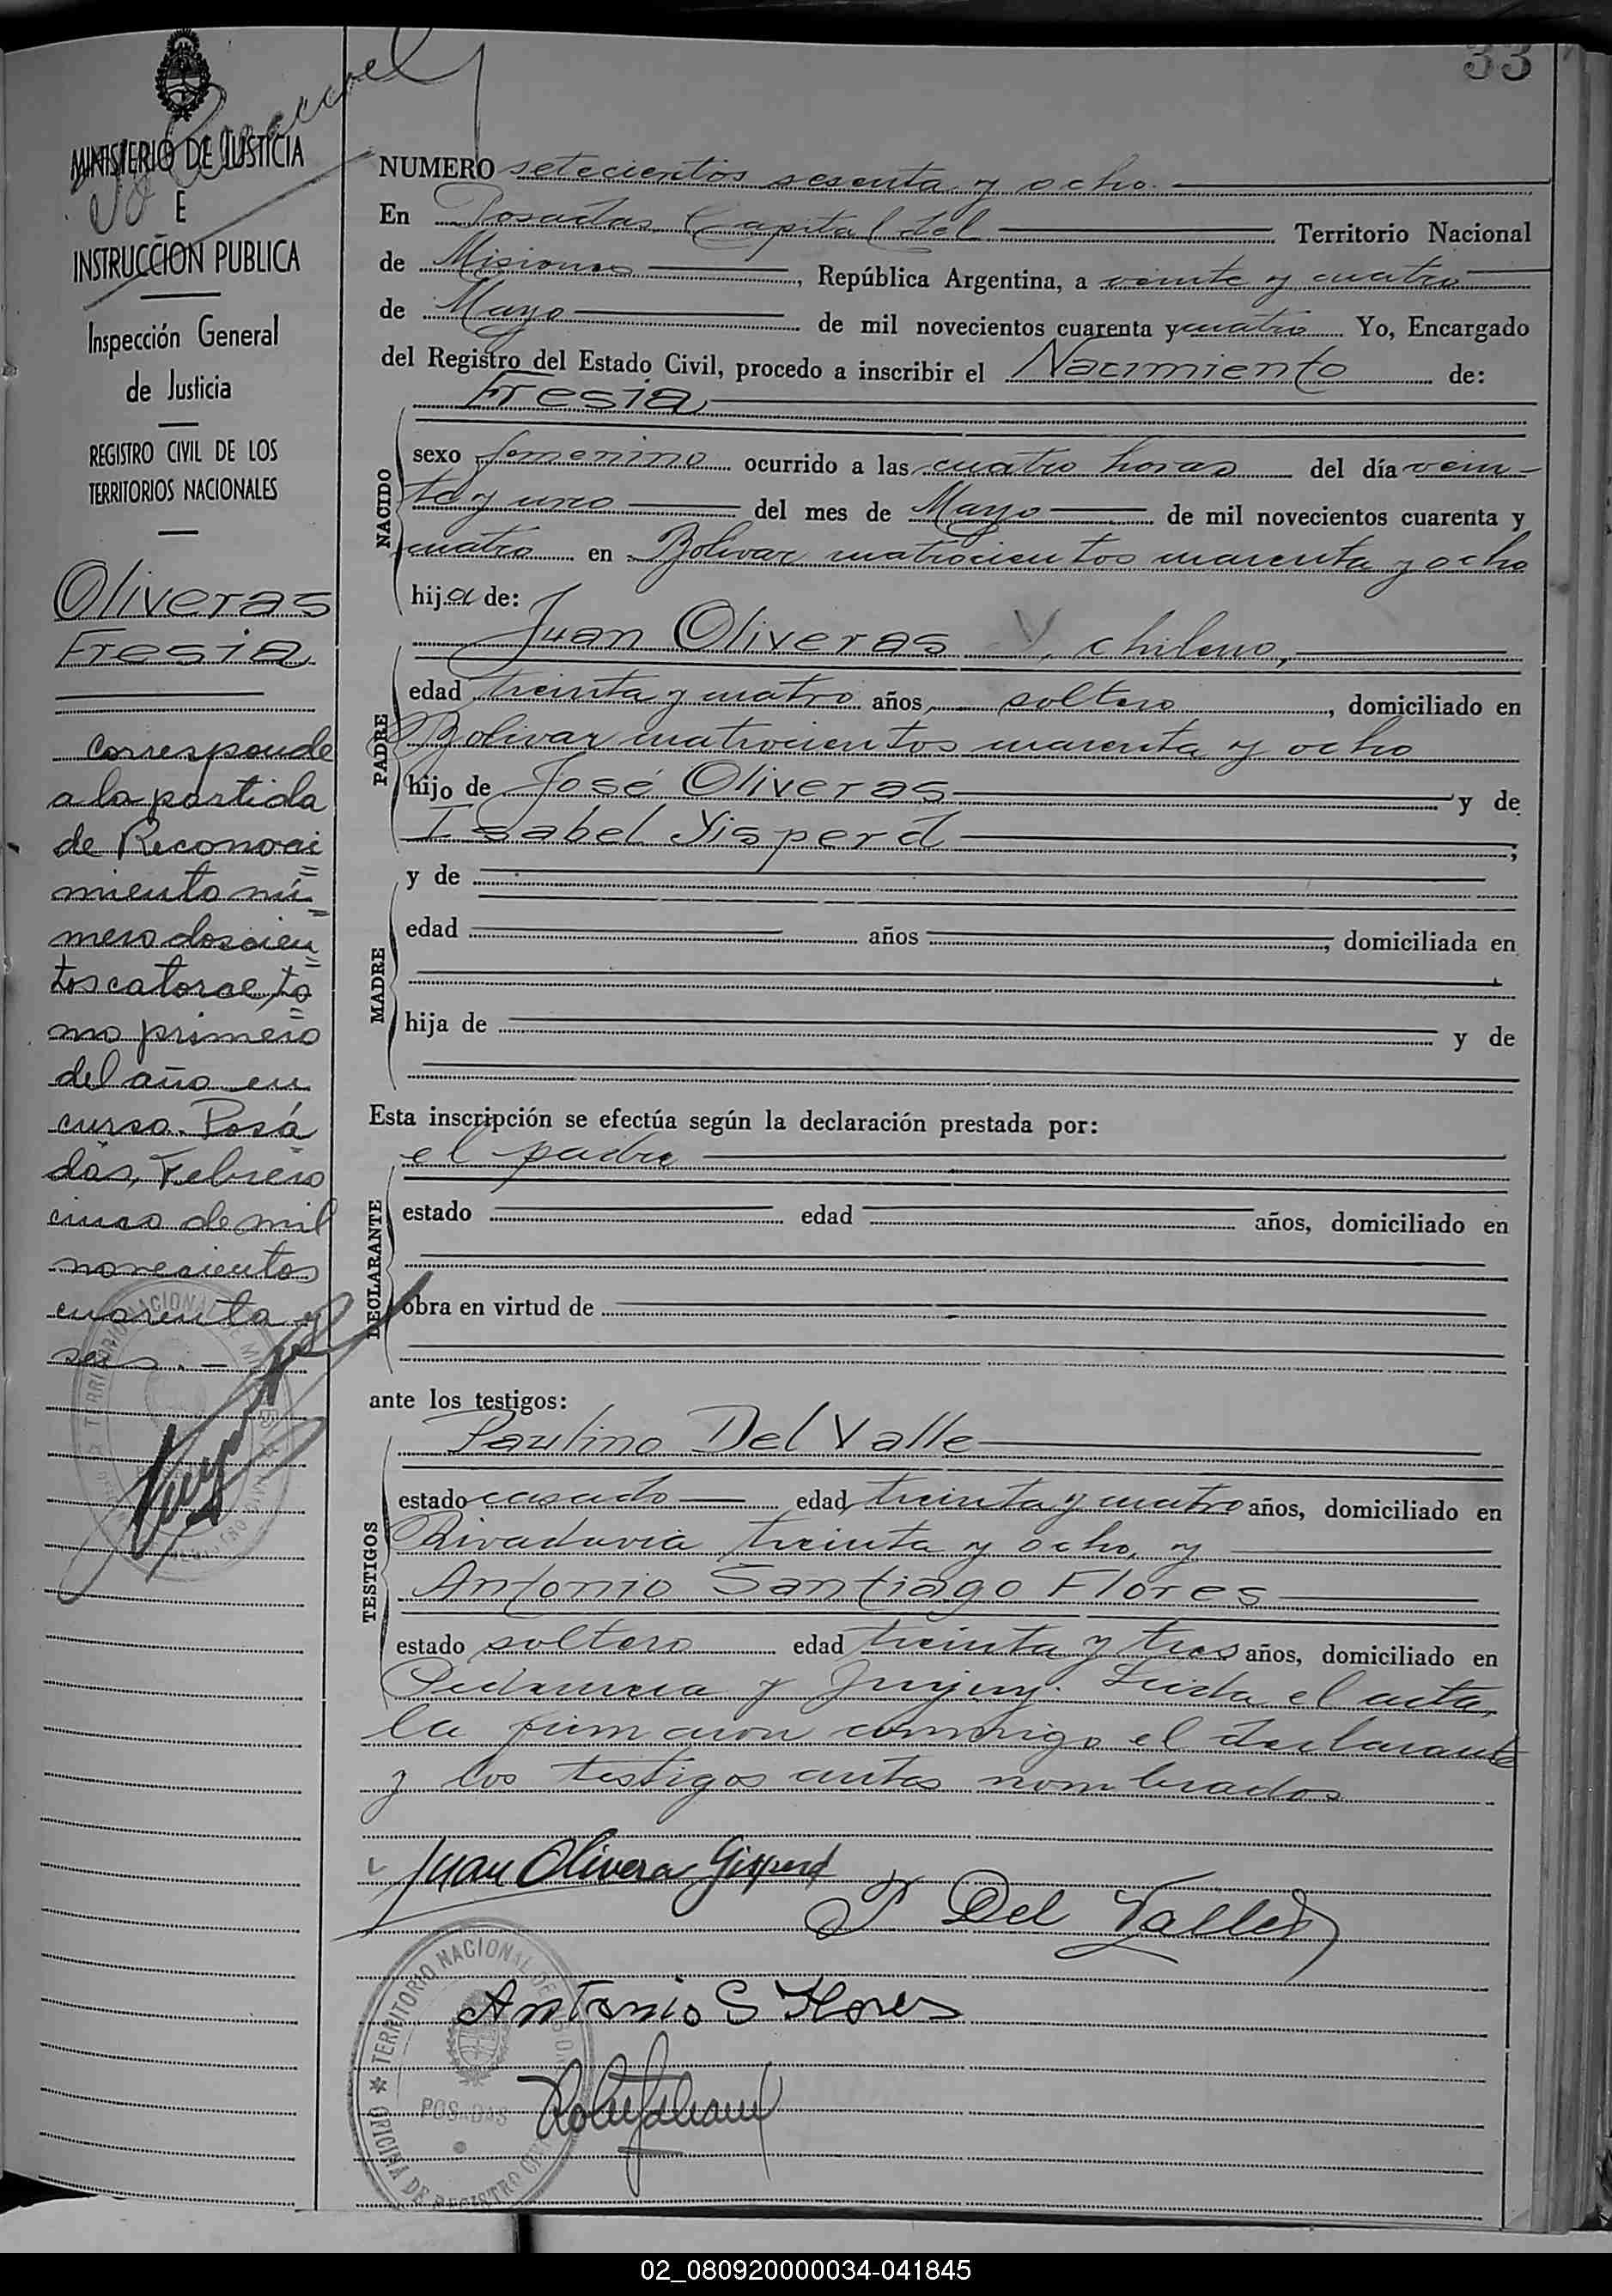 33
MINISTERIO DE JUSTICIA
E
INSTRUCCION PUBLICA
Inspección General
de Justicia
REGISTRO CIVIL DE LOS
TERRITORIOS NACIONALES
Oliveras
Fresia
corresponde
a la partida
de Reconoci
miento nú
mero doscien
tos catorce, to
mo primero
del año en
curso. Posa
das, Febrero
cinco de mil
novecientos
cuarenta y
seis.-
NUMERO setecientos sesenta y ocho.
En Posadas, Capital del Territorio Nacional
de Misiones, República Argentina, a veinte y cuatro
de Mayo de mil novecientos cuarenta y cuatro Yo, Encargado
del Registro del Estado Civil, procedo a inscribir el Nacimiento de:
Fresia
NACIDO
sexo femenino ocurrido a las cuatro horas del día vein-
te y uno del mes de Mayo de mil novecientos cuarenta y
cuatro en Bolivar cuatrocientos cuarenta y ocho
hija de:
Juan Oliveras, chileno,
PADRE
edad treinta y cuatro años, soltero, domiciliado en
Bolivar cuatrocientos cuarenta y ocho
hijo de José Oliveras y de
Isabel Yisperd;
y de
MADRE
edad años, domiciliada en
hija de y de
Esta inscripción se efectúa según la declaración prestada por:
el padre
DECLARANTE
estado edad años, domiciliado en
obra en virtud de
ante los testigos:
Paulino Del Valle
TESTIGOS
estado casado edad treinta y cuatro años, domiciliado en
Rivadavia treinta y ocho, y
Antonio Santiago Flores
estado soltero edad treinta y tres años, domiciliado en
y Jujuy. Leída el acta,
la firmaron conmigo el declarante
y los testigos antes nombrados
Juan Olivera Gisperd
P Del Valle
Antonio S Flores
TERRITORIO NACIONAL DE MISIONES
POSADAS
OFICINA DE REGISTRO CIVIL
02_080920000034-041845